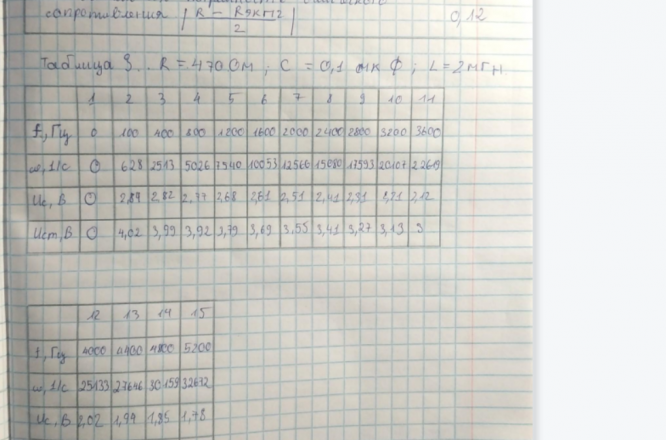 сопротивления | R - R9кГц / 2 | 0,12
Таблица 3. R = 470 Ом; C = 0,1 мкФ; L = 2 мГн
1 2 3 4 5 6 7 8 9 10 11
f, Гц 0 100 400 800 1200 1600 2000 2400 2800 3200 3600
ω, 1/с 0 628 2513 5026 7540 10053 12566 15080 17593 20107 22619
Uc, В 0 2,89 2,82 2,77 2,68 2,61 2,51 2,41 2,31 2,21 2,12
Uст, В 0 4,02 3,99 3,92 3,79 3,69 3,55 3,41 3,27 3,13 3
12 13 14 15
f, Гц 4000 4400 4800 5200
ω, 1/с 25133 27646 30159 32672
Uc, В 2,02 1,94 1,85 1,78